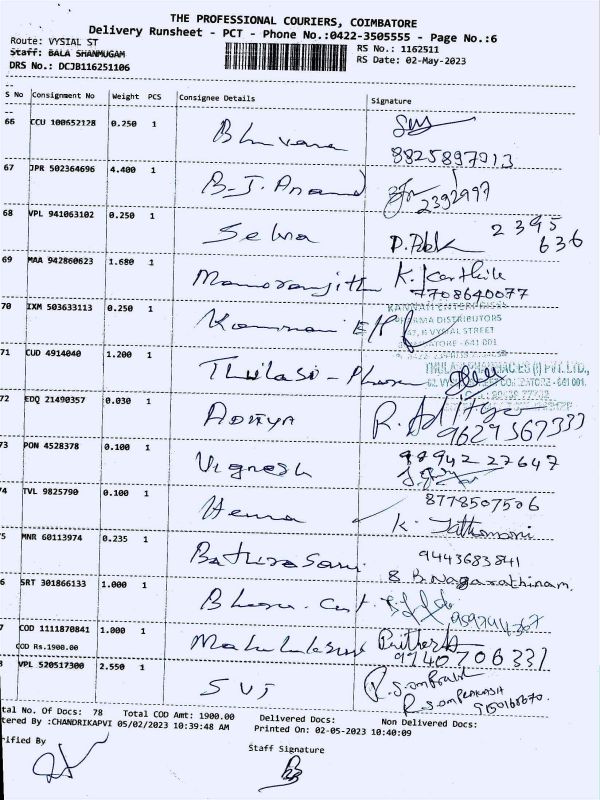 THE PROFESSIONAL COURIERS, COIMBATORE
Delivery Runsheet - PCT - Phone No.:0422-3505555 - Page No.:6
Route: VYSIAL ST
Staff: BALA SHANMUGAM
DRS No.: DCJB116251106
RS No.: 1162511
RS Date: 02-May-2023
S No Consignment No Weight PCS Consignee Details Signature
66 CCU 100652128 0.250 1 Bhuvana
8825897013
67 JPR 502364696 4.400 1 B-J. Anand 2392997
68 VPL 941063102 0.250 1 Selva 2395
636
69 MAA 942860623 1.680 1 Manoranjith K. Karthik
7708640077
70 IXM 503633113 0.250 1 Kannan E/P
KANNAN ENTERPRISES
PHARMA DISTRIBUTORS
67, B VYSIAL STREET
COIMBATORE - 641 001
71 CUD 4914040 1.200 1 Thulasi - Pharma
THULASI PHARMACIES (I) PVT. LTD.,
72 EDQ 21490357 0.030 1 Aditya R. Aditya
9629567333
73 PON 4528378 0.100 1 Vignesh 98942 27647
74 TVL 9825790 0.100 1 Hema 8778507506
K. Jathamani
75 MNR 60113974 0.235 1 Bathirasami 9443683841
B. Nagarathinam.
76 SRT 301866133 1.000 1
77 COD 1111870841 1.000 1
COD Rs.1900.00
9740706331
78 VPL 520517300 2.550 1 SVJ
R. S. OM PRAKASH
9150168670.
Total No. Of Docs: 78 Total COD Amt: 1900.00 Delivered Docs: Non Delivered Docs:
Entered By :CHANDRIKAPVI 05/02/2023 10:39:48 AM Printed On: 02-05-2023 10:40:09
Verified By
Staff Signature